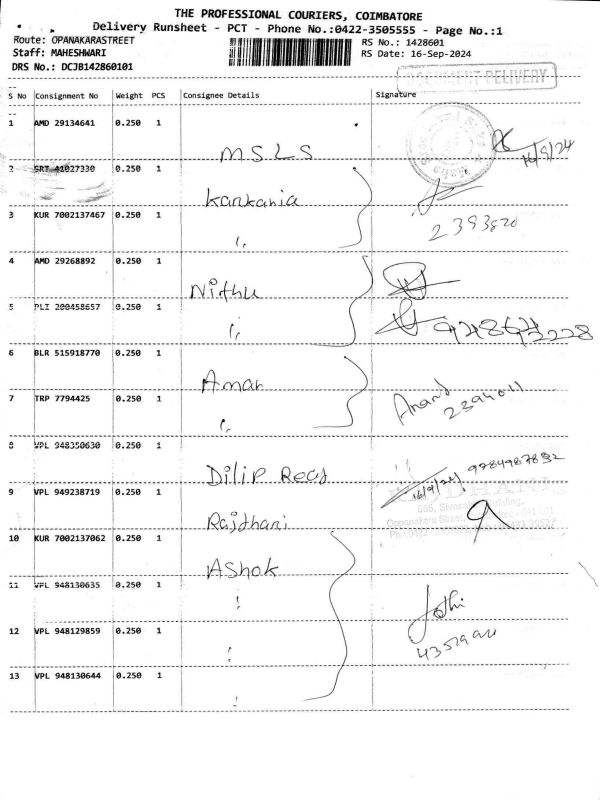 THE PROFESSIONAL COURIERS, COIMBATORE
Delivery Runsheet - PCT - Phone No.:0422-3505555 - Page No.:1
Route: OPANAKARASTREET
RS No.: 1428601
Staff: MAHESHWARI
RS Date: 16-Sep-2024
DRS No.: DCJB142860101
DOCUMENT DELIVERY
S No Consignment No Weight PCS Consignee Details Signature
1 AMD 29134641 0.250 1
MSLS
16/9/24
2 SRT 41027330 0.250 1
Kankania
3 KUR 7002137467 0.250 1
2393820
"
4 AMD 29268892 0.250 1
Nithu
5 PLI 200458657 0.250 1
"
6 BLR 515918770 0.250 1
Aman
7 TRP 7794425 0.250 1
Anand
2394011
"
8 VPL 948350630 0.250 1
Dilip Reas
16/9/24
9784987892
9 VPL 949238719 0.250 1
Rajdhani
10 KUR 7002137062 0.250 1
Ashok
11 VPL 948130635 0.250 1
"
Jothi
12 VPL 948129859 0.250 1
"
13 VPL 948130644 0.250 1
"